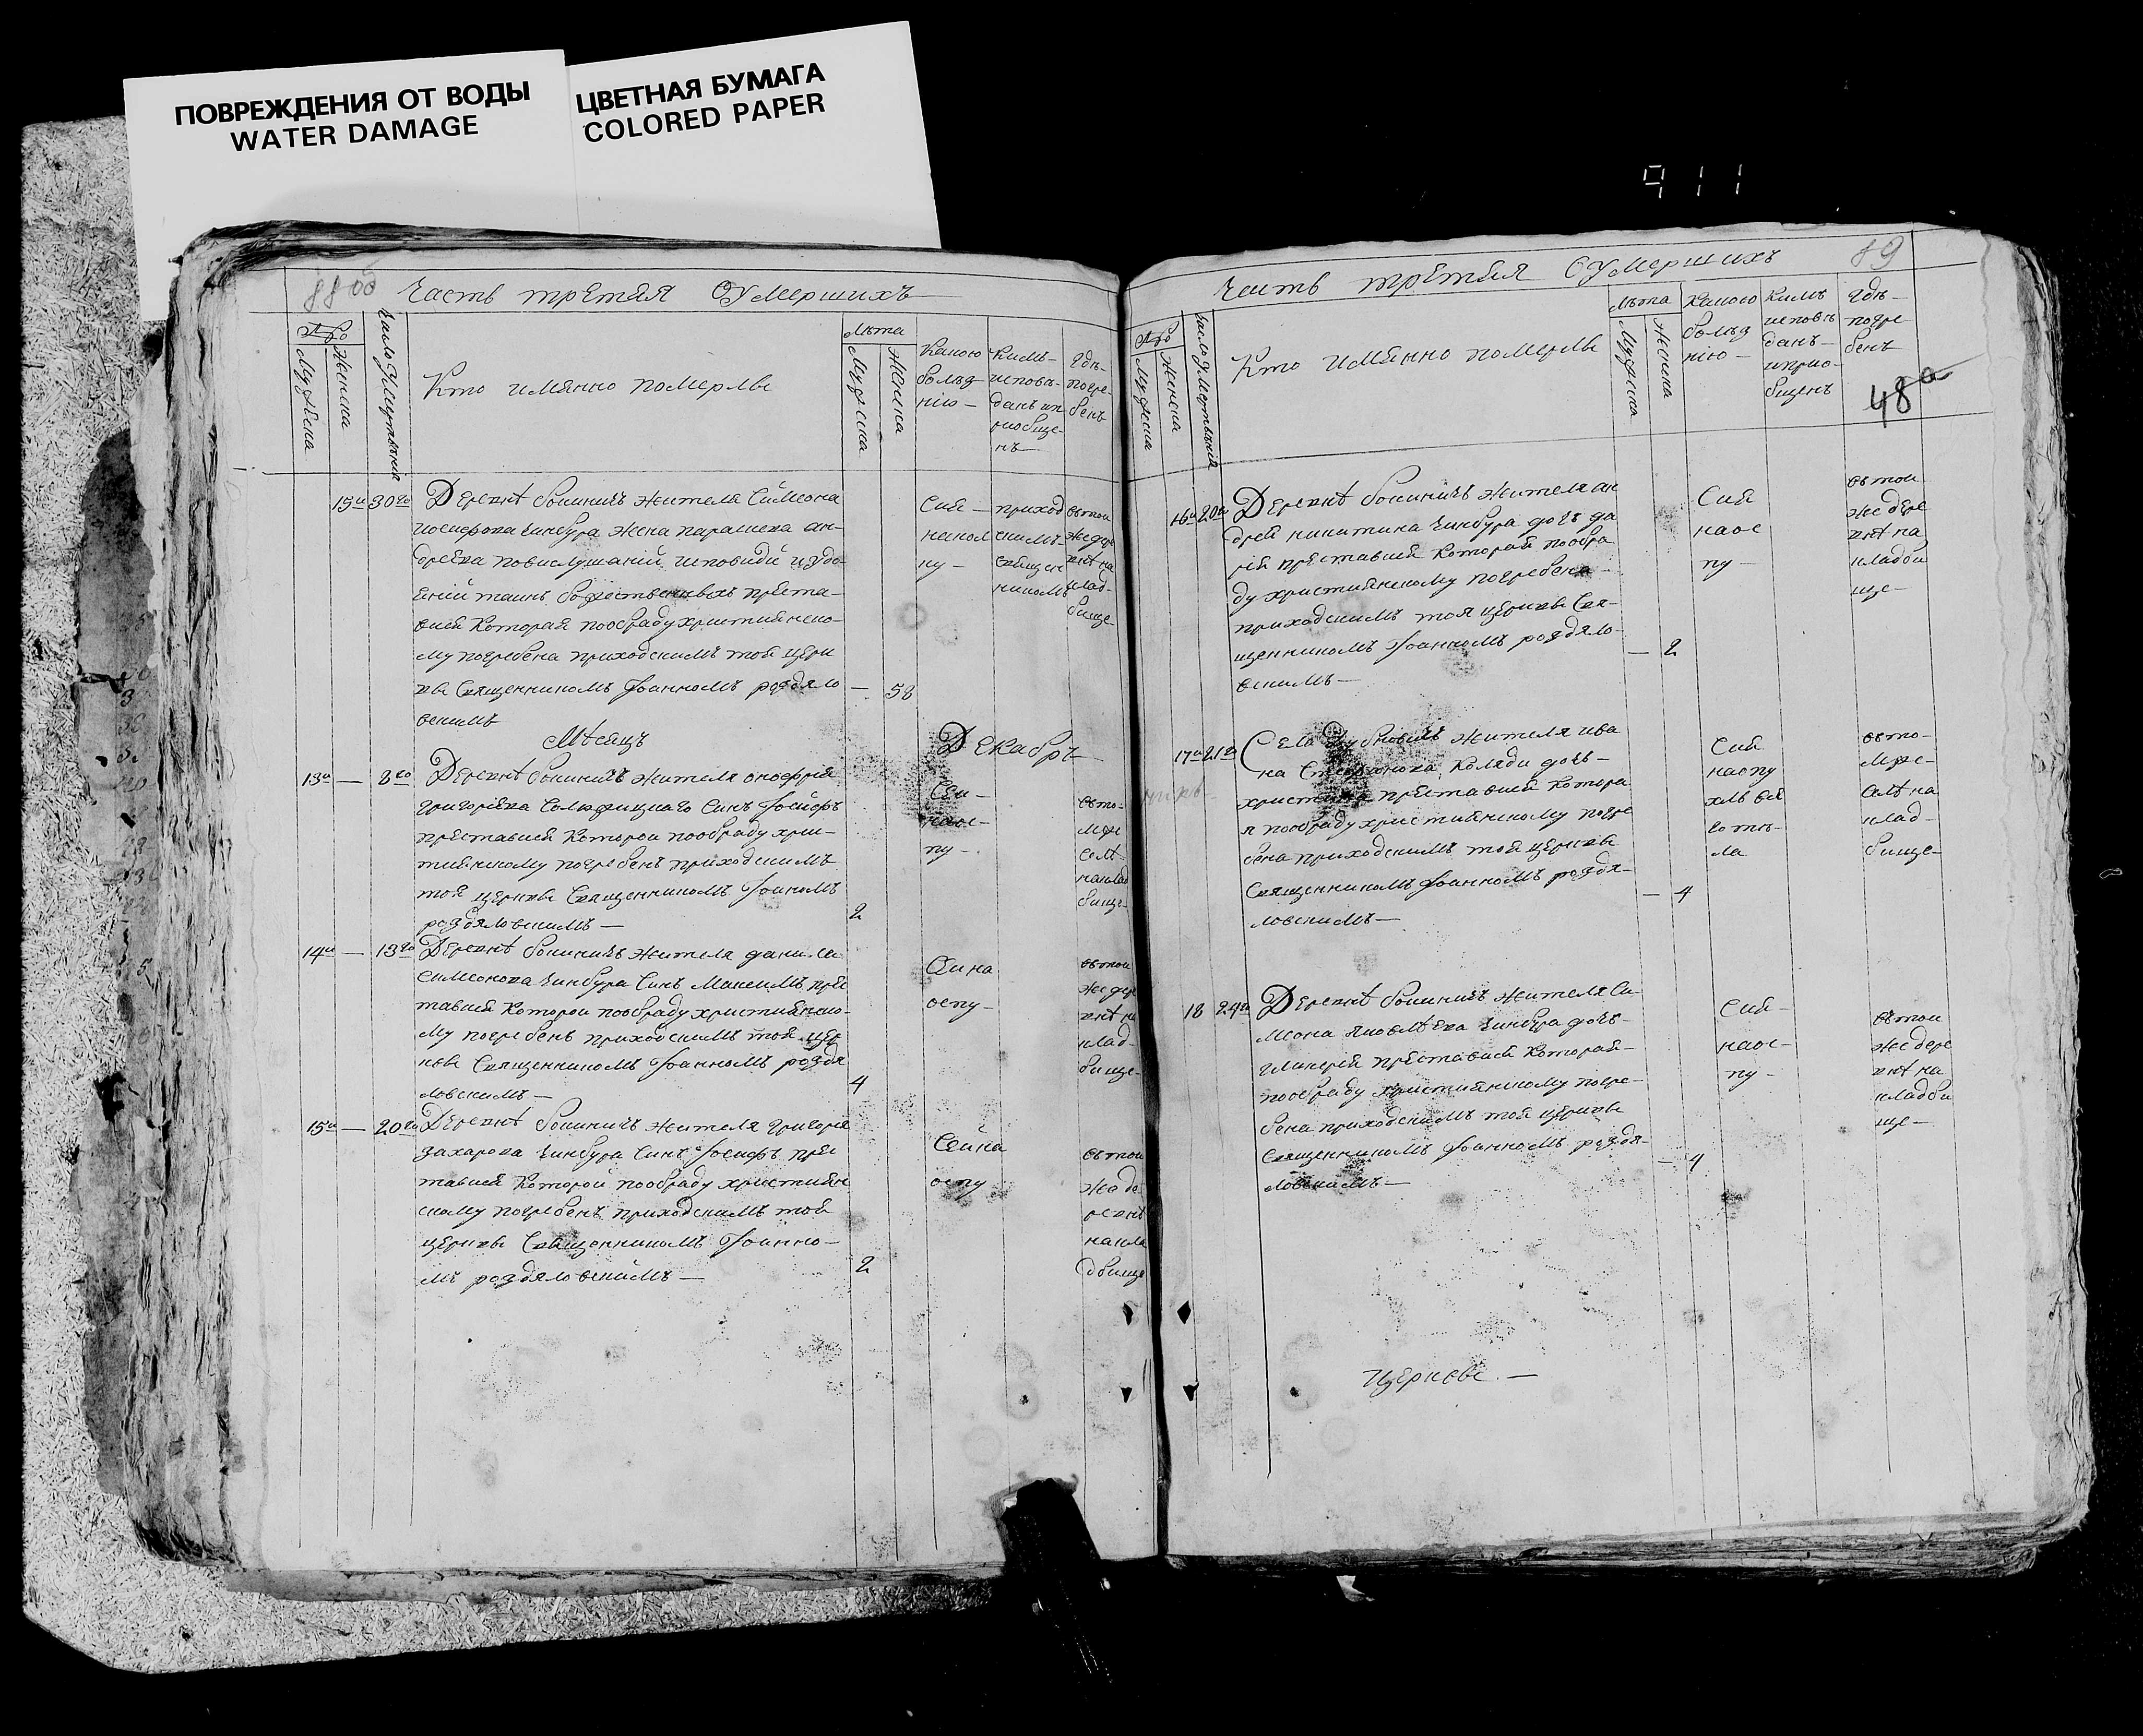 ПОВРЕЖДЕНИЯ ОТ ВОДЫ
WATER DAMAGE
ЦВЕТНАЯ БУМАГА
COLORED PAPER
911
Часть третая Оумершихъ
Мужеска
Женска
Кто имянно померлъ
лѣта
Мужеска
Женска
Какою
болѣз
нію —
Кимъ
испове-
данъ ип
риобще-
нъ
Гдѣ-
погре-
бенъ
15а 30го
Деревнѣ жителя Симеона
иосифова Чинбура жена параскева ан-
дреева исповиди
таинъ божественныхъ преста-
вися которая пообраду християнско-
му погребена приходскимъ той церк
вы Священникомъ Іоанномъ роздяло
вскимъ
— 58
Сия —
приход
скимъ
священ
никомъ
втои
же дере
внѣ на
клад-
бище
Мѣсяцъ
Декабръ
13а — 8го
Деревнѣ жителя онофрія
григоріева Синъ Іосифъ
преставися которои пообраду хри-
тиянскому погребенъ приходскимъ
той церквы Священникомъ
роздяловскимъ —
2
Сеи —
наос-
пу —
вто-
мже
селѣ
наклад
бище-
14а — 13го
Деревнѣ жителя данила
симеонова Чинбура Синъ Максимъ прес
тавися которои пообраду християнско-
му погребенъ приходскимъ той цер
квы Священникомъ Іоанномъ роздя
ловскимъ —
4
Сина
оспу —
втои
же дере
внѣ на
клад-
бище-
15а — 20го
Деревнѣ жителя григория
захарова Чинбура Синъ Іосифъ прес
тавися которой пообраду християн
скому погребенъ приходскимъ той
церквы Священникомъ Іоанно-
мъ роздяловскимъ —
2
Сеина
оспу
втои
же де
ревнѣ
накла
дбище
Часть третая Оумершихъ
89
48а
Мужеска
Женска
Кто имянно померлъ
лѣта
Мужеска
Женска
Какою
болѣз
нію —
Кимъ
исповѣ
данъ —
иприо-
бщенъ
Гдѣ-
погре
бенъ
16а 20го
Деревнѣ жителя ан
дрей никитина Чинбура дочъ да
рія преставися которая пообра
ду християнскому погребена —
приходскимъ тоя церквы Свя-
щенникомъ Іоанномъ роздяло-
вскимъ —
— 2
Сия
наос
пу —
втои
же дере
внѣ на
кладби
ще —
17а 21го
Села жителя ива
на Коляди дочъ —
преставися котора
я пообраду християнскому погре
бена приходскимъ той церквы
Священникомъ Іоанномъ роздя-
ловскимъ —
— 4
Сия
наспу
вто-
мже-
селѣ на
клад-
бище-
18 29го
Деревнѣ жителя Си
меона Чинбура дочъ —
преставися которая —
пообраду християнскому погре-
бена приходскимъ той церквы
Священникомъ Іоанномъ роздя-
ловскимъ —
— 4
Сия —
наос-
пу —
втои
же дере
внѣ на
кладби
ще —
церквы —